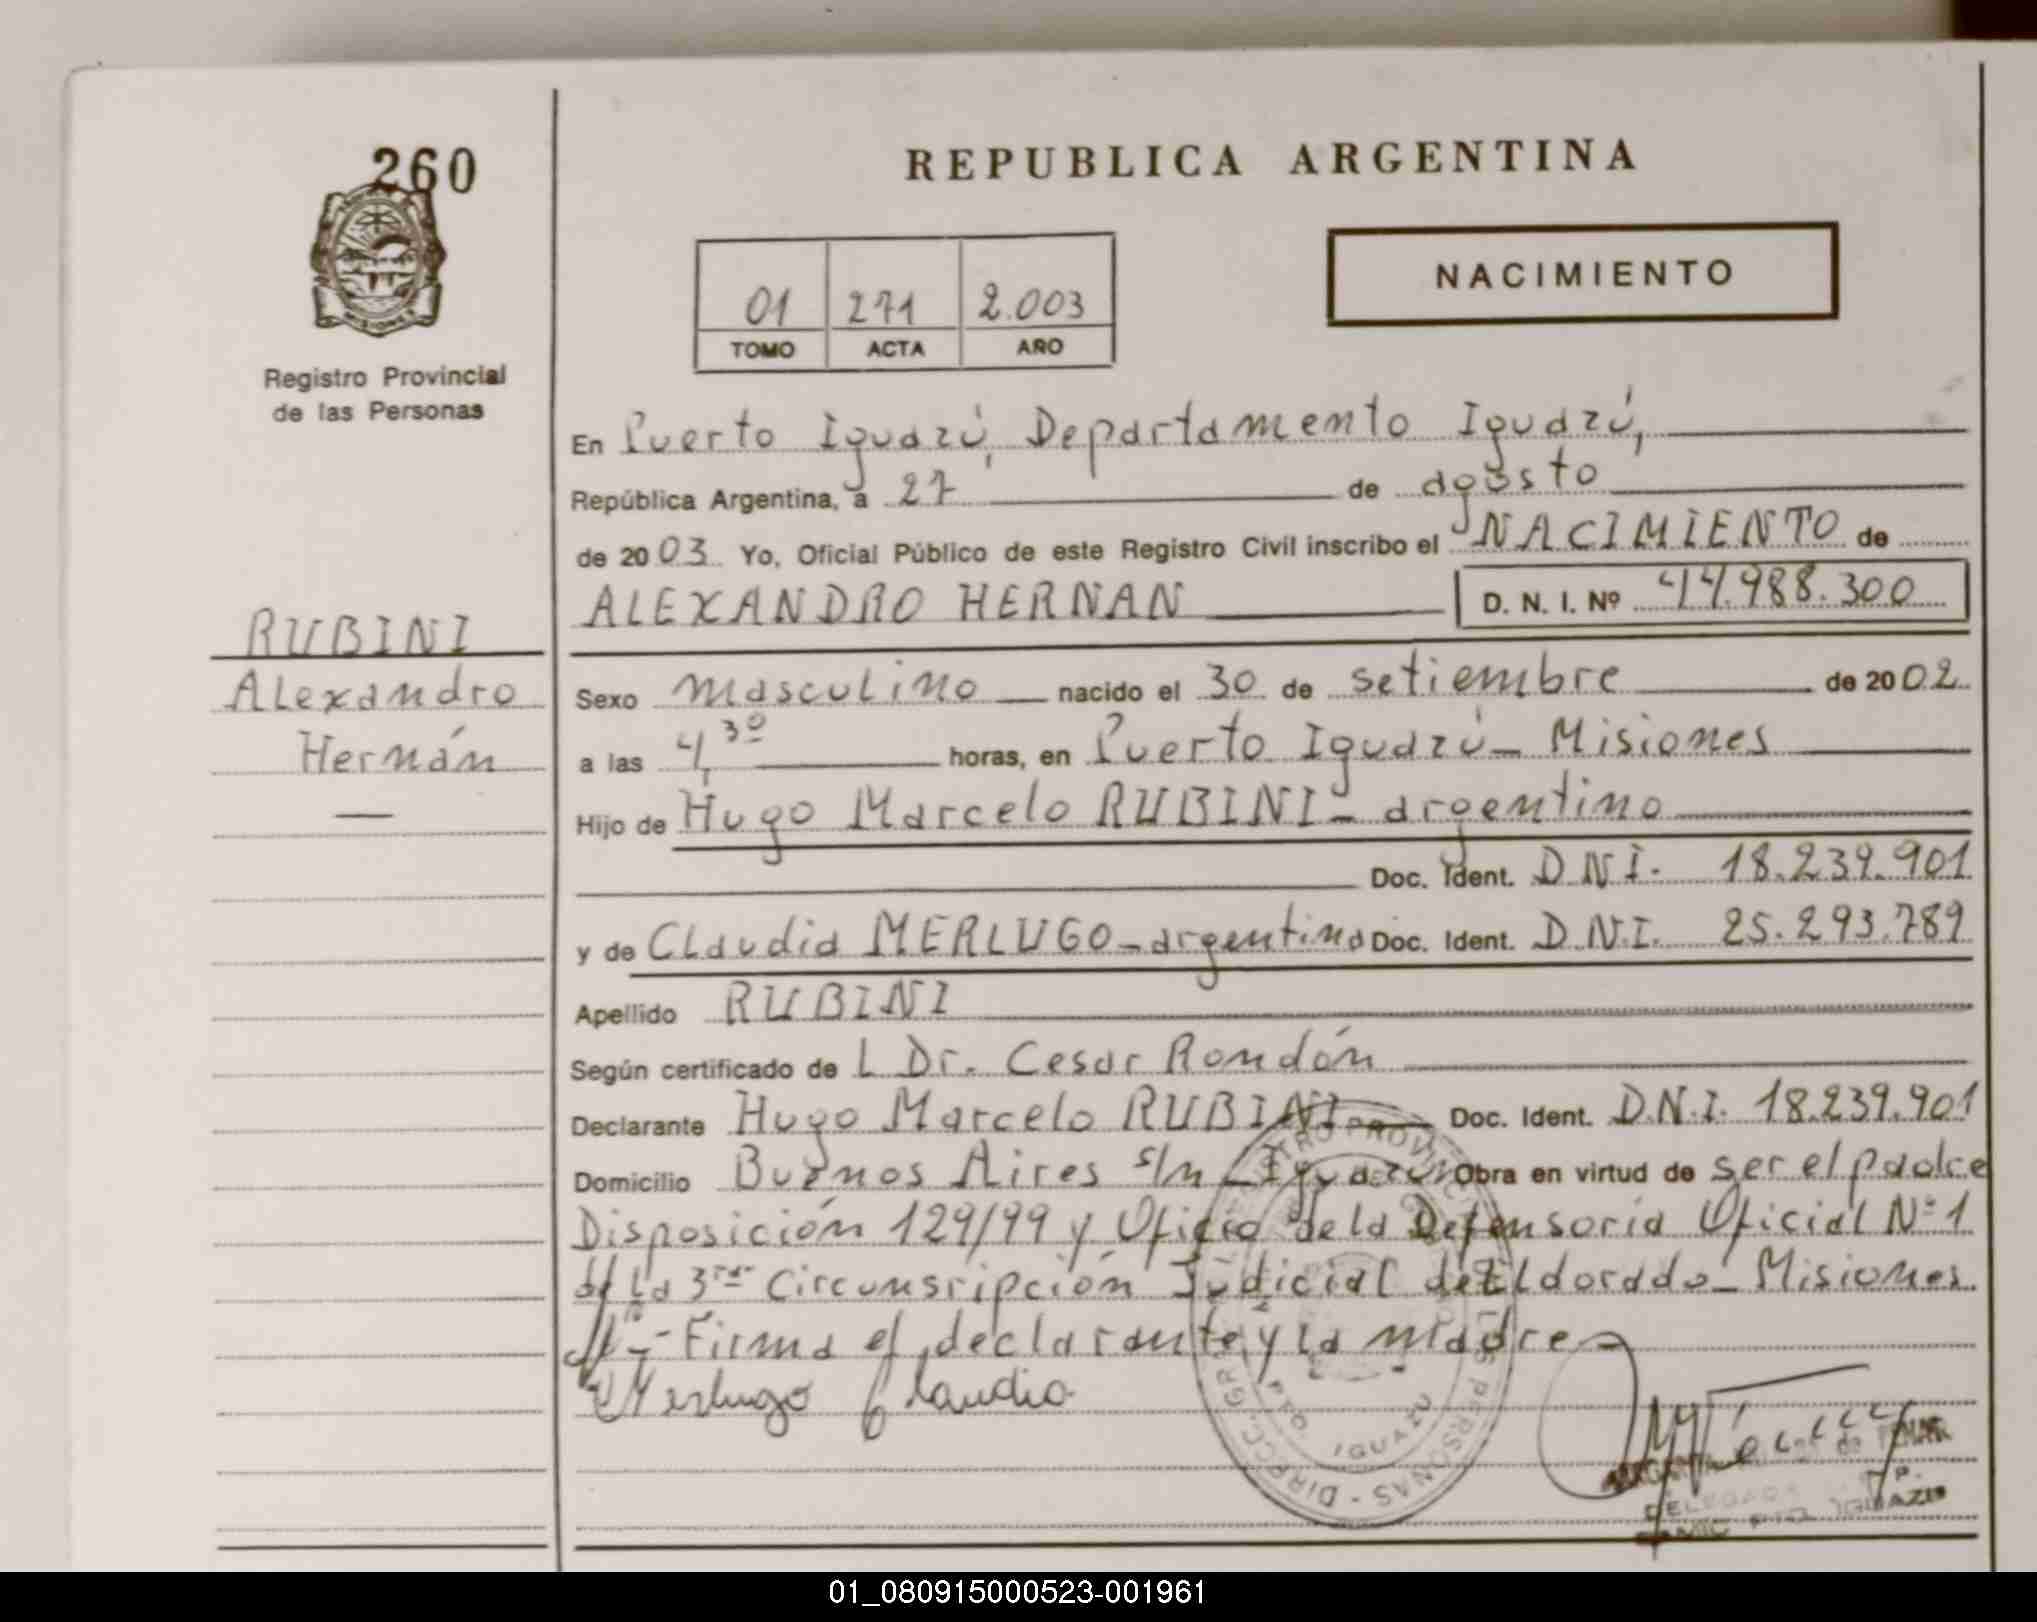 260
MISIONES
Registro Provincial
de las Personas
RUBINI
Alexandro
Hernán
REPUBLICA ARGENTINA
01 271 2.003
TOMO ACTA AÑO
NACIMIENTO
En Puerto Iguazú, Departamento Iguazú,
República Argentina, a 27 de agosto
de 2003 Yo, Oficial Público de este Registro Civil inscribo el NACIMIENTO de
ALEXANDRO HERNAN D. N. I. Nº 44.988.300
Sexo masculino nacido el 30 de setiembre de 2002
a las 4,30 horas, en Puerto Iguazú - Misiones
Hijo de Hugo Marcelo RUBINI - argentino
Doc. Ident. D.N.I. 18.239.901
y de Claudia MERLUGO - argentina Doc. Ident. D.N.I. 25.293.789
Apellido RUBINI
Según certificado de L Dr. Cesar Rondón
Declarante Hugo Marcelo RUBINI Doc. Ident. D.N.I. 18.239.901
Domicilio Buenos Aires s/n - Iguazú Obra en virtud de ser el padre
Disposición 129/99 y Oficio de la Defensoría Oficial Nº 1
de la 3ra Circunsripción Judicial de Eldorado - Misiones.
- Firma el declarante y la madre
Merlugo Claudia
PTO. IGUAZU
DELEGADA
PTO IGUAZU
01_080915000523-001961